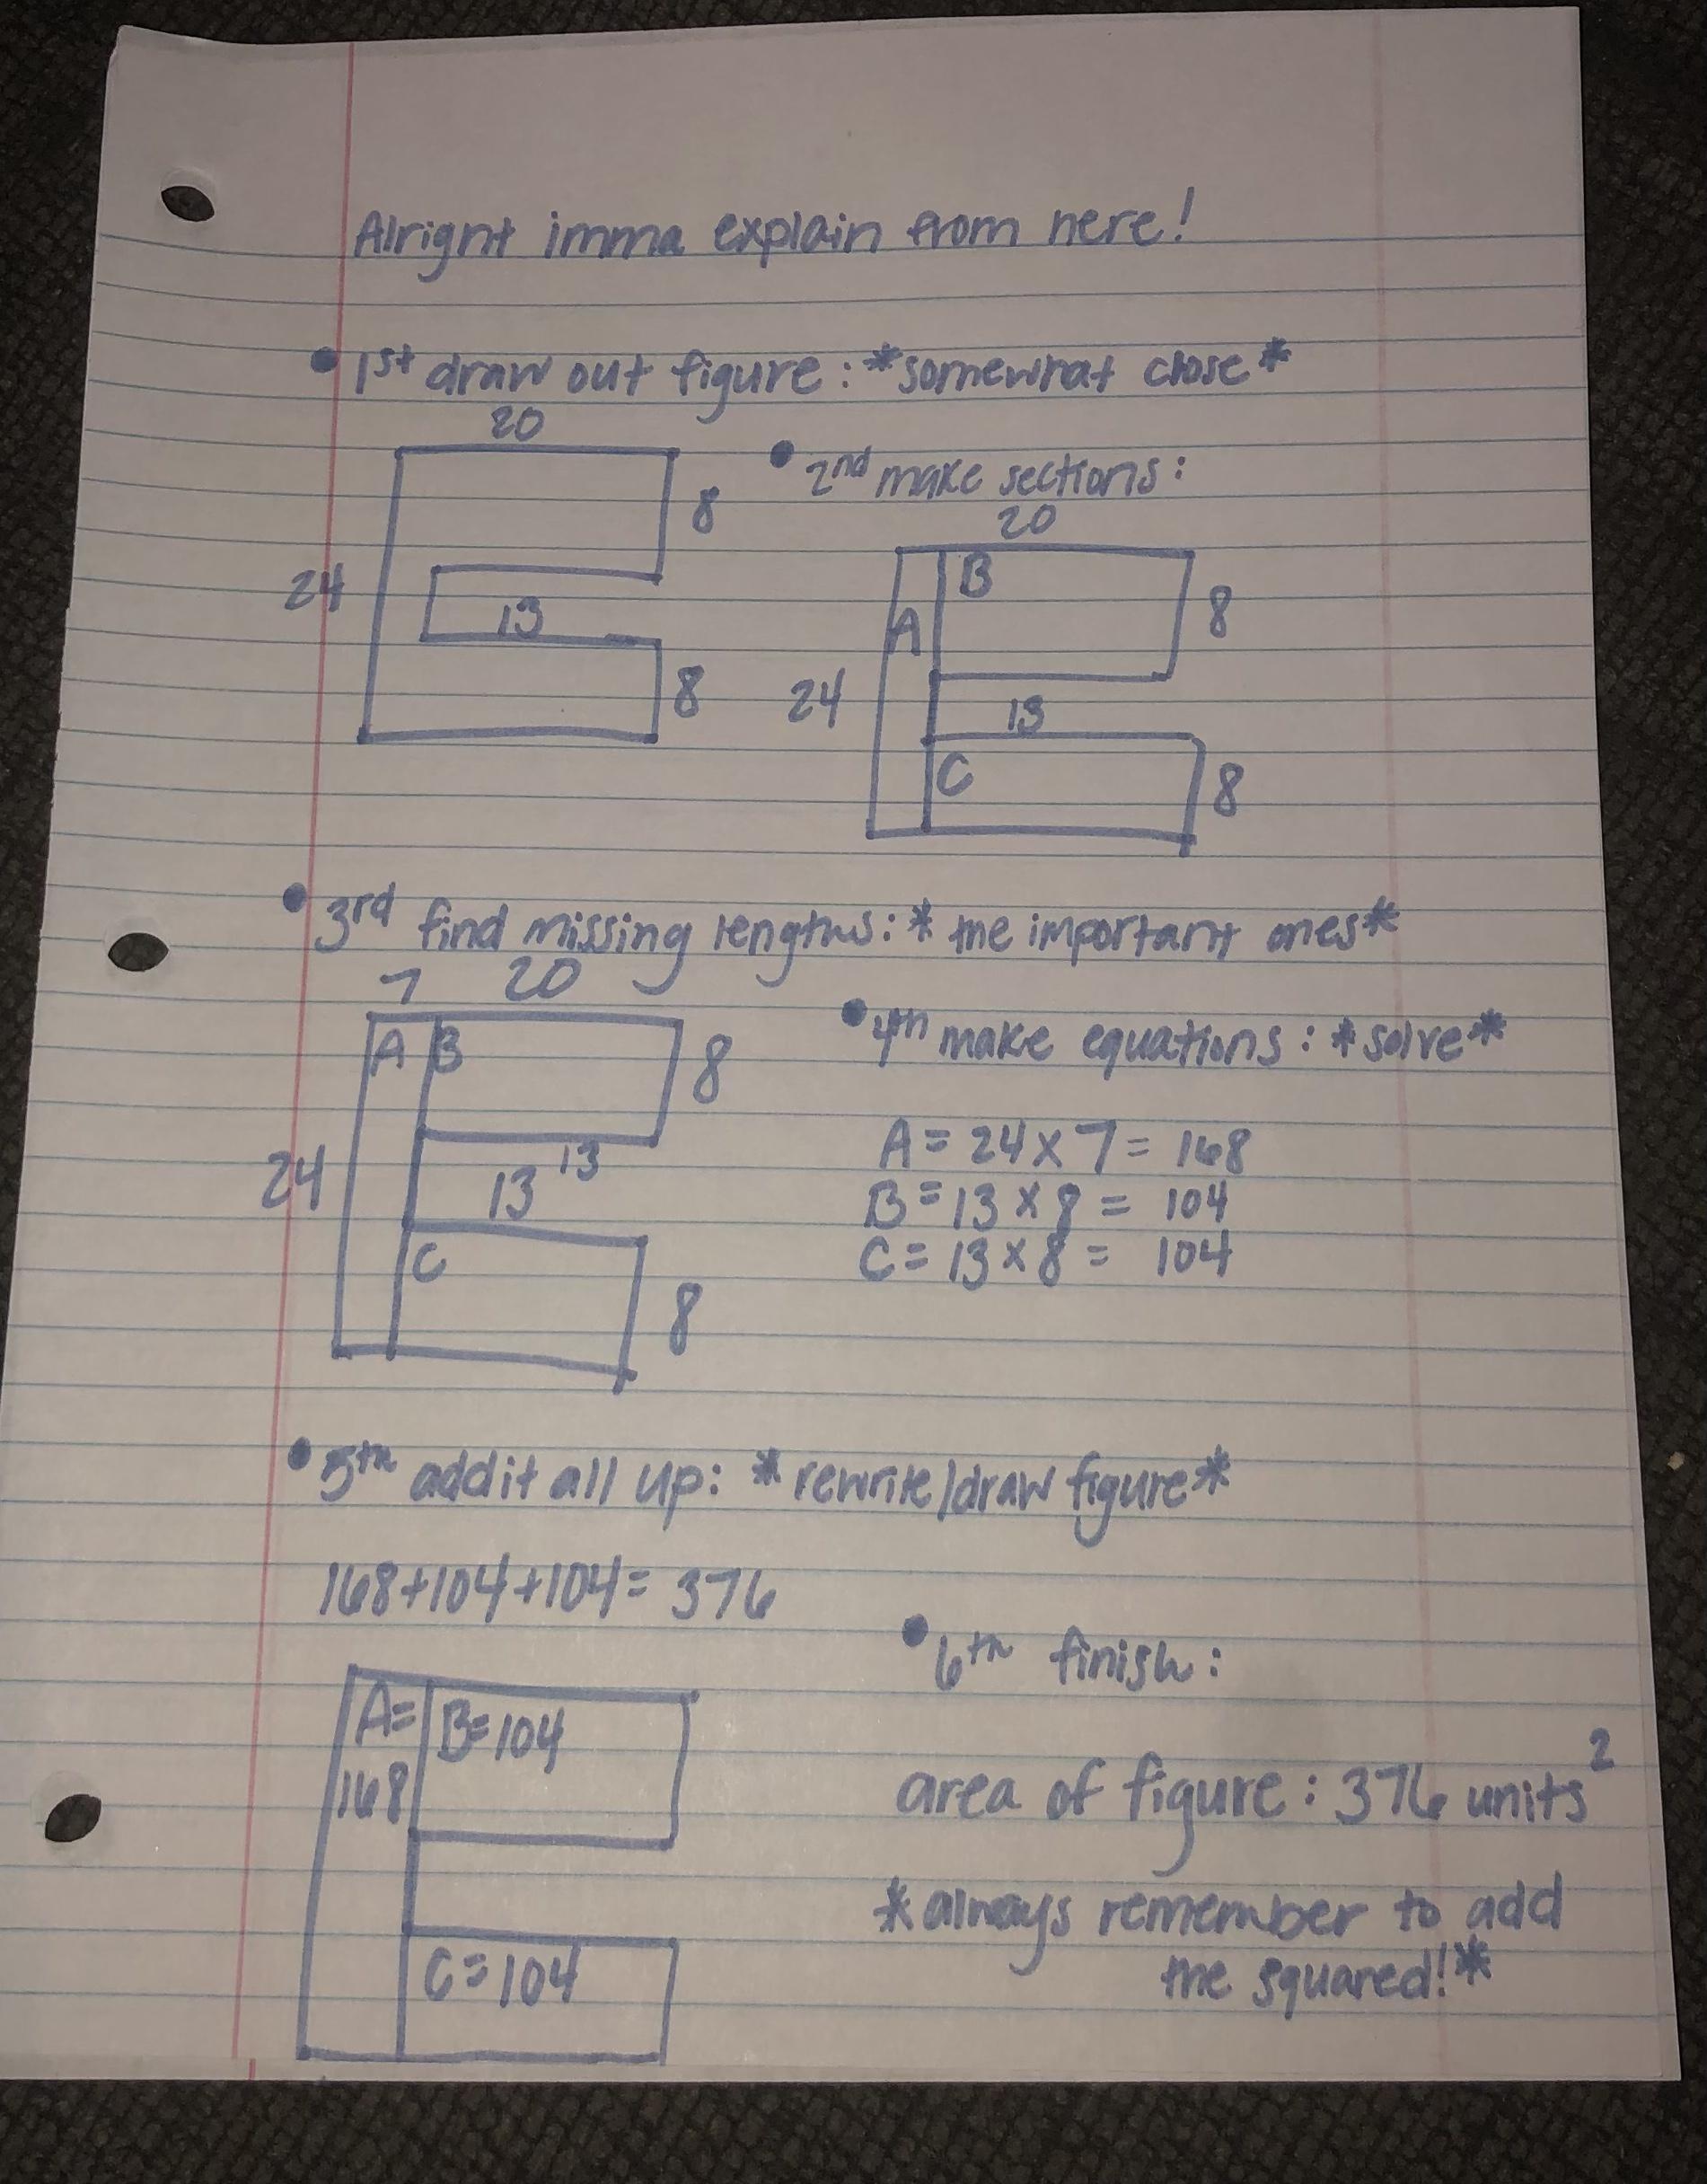 Alright imma explain from here!
• 1st draw out figure: *somewhat close*
20
8
24
13
8
• 2nd make sections:
20
B
A
8
24
13
C
8
• 3rd find missing lengths: * the important ones*
7 20
A B
8
24
13 13
C
8
• 4th make equations: *solve*
A = 24 x 7 = 168
B = 13 x 8 = 104
C = 13 x 8 = 104
• 5th add it all up: *rewrite/draw figure*
168+104+104= 376
A=
168
B=104
C=104
• 6th finish:
area of figure: 376 units²
*always remember to add
the squared!*